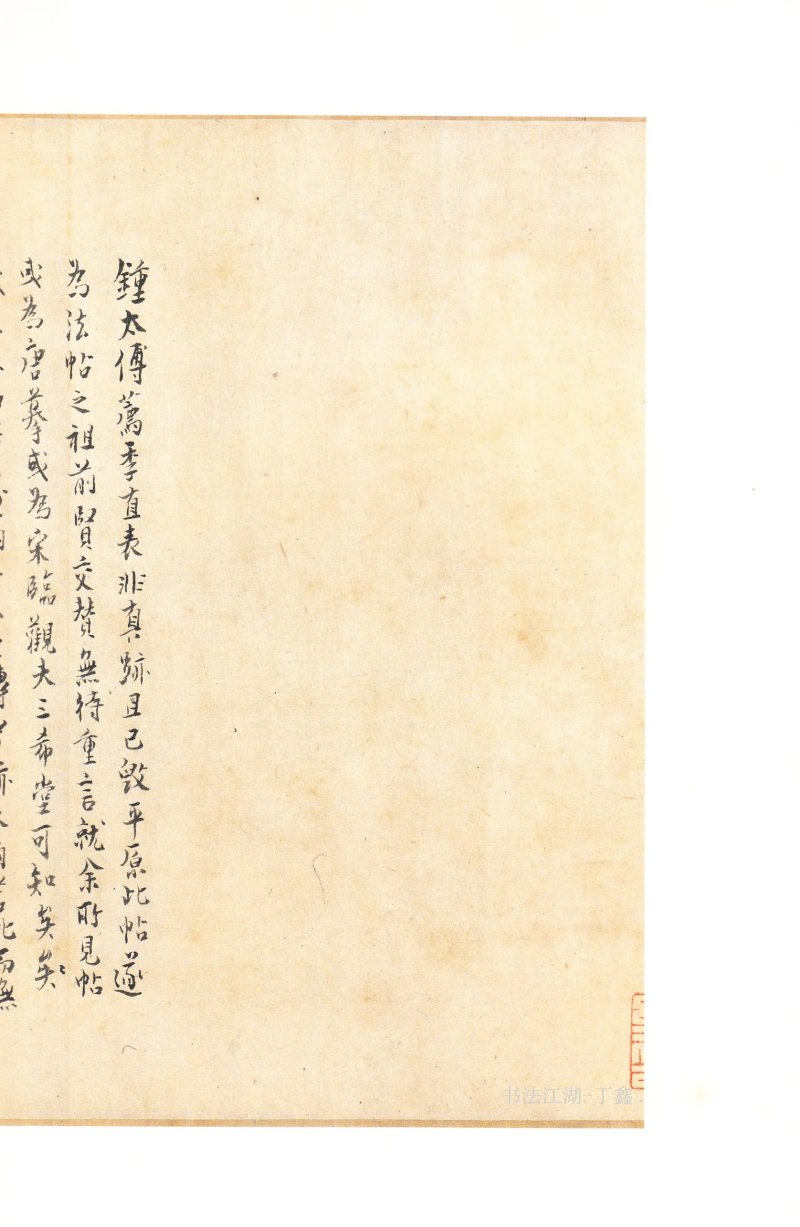 鍾太傅薦季直表非真跡且已毀平原此帖遂
為法帖之祖前賢交贊無待重言就余所見帖
或為唐摹或為宋臨觀夫三希堂可知矣矣〻
书法江湖:丁鑫